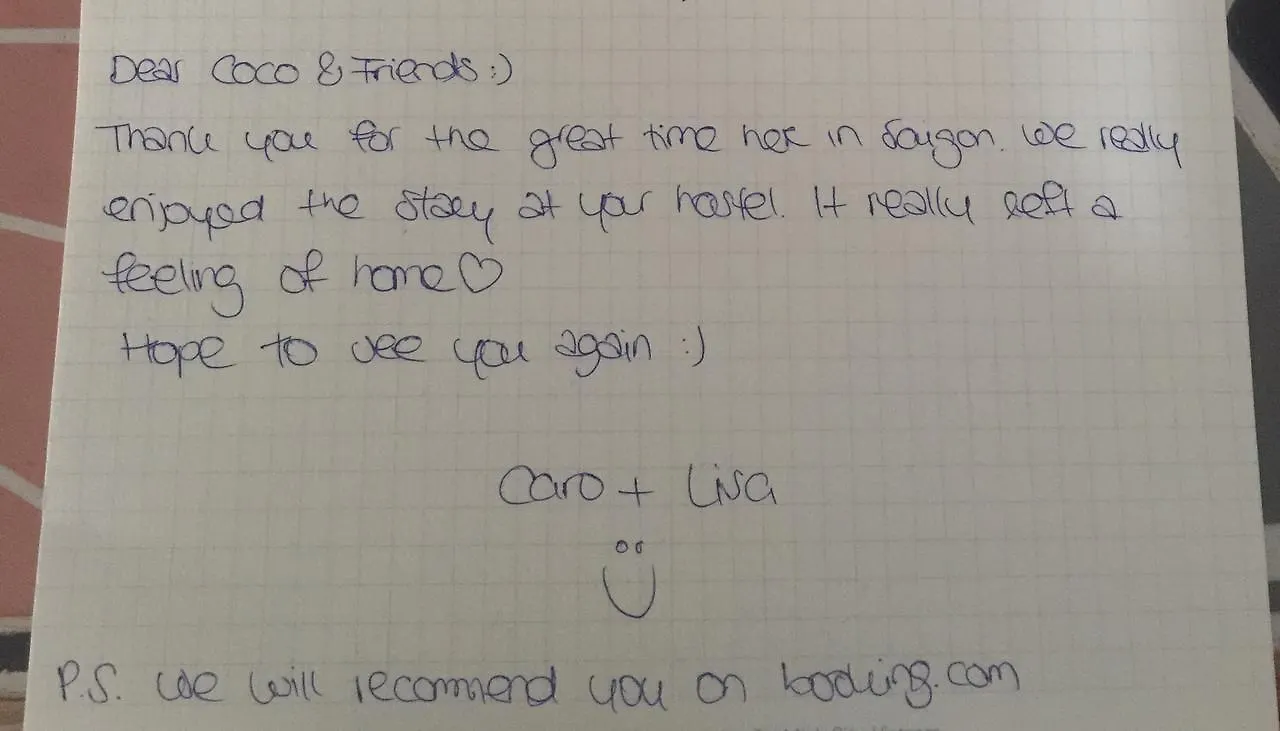 Dear Coco & Friends :)
Thank you for the great time here in Saigon. We really
enjoyed the stay at your hostel. It really left a
feeling of home ♡
Hope to see you again :)
Caro + Lisa
P.S. We will recommend you on booking.com